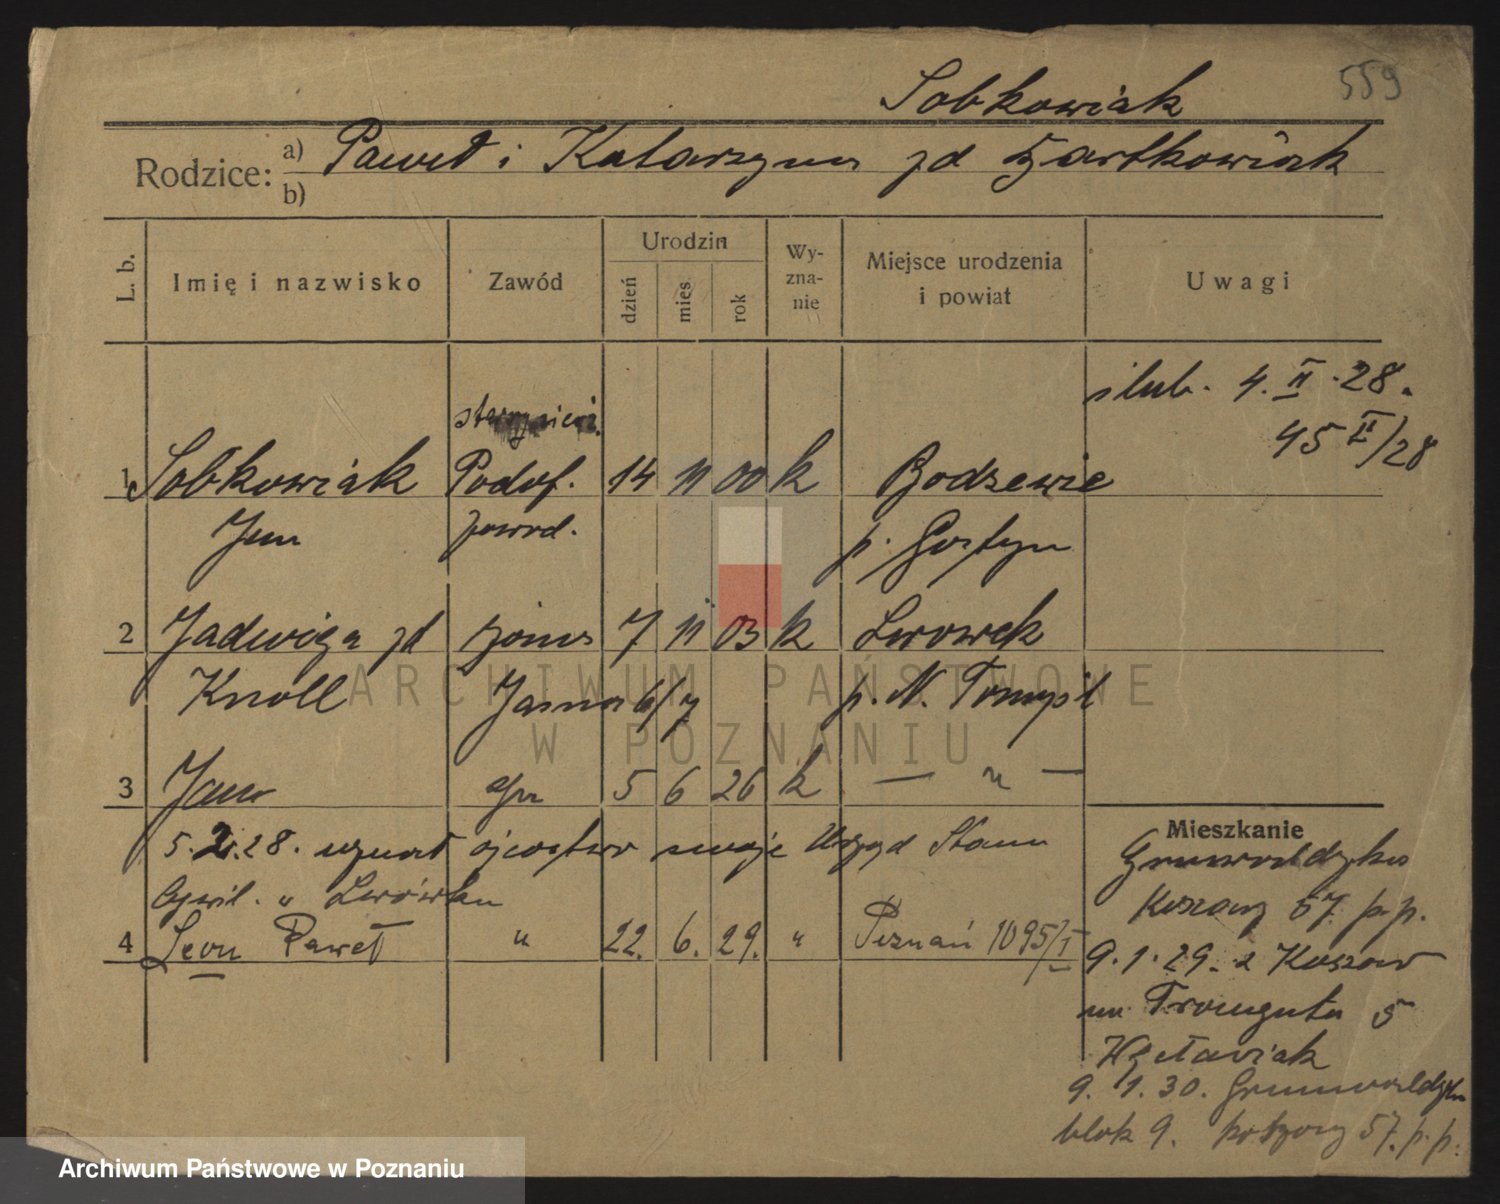 559
Sobkowiak
Rodzice: a) Paweł i Katarzyna zd Bartkowiak
b)
L. b. Imię i nazwisko Zawód Urodzin dzień mies rok Wyznanie Miejsce urodzenia i powiat Uwagi
ślub. 4. II. 28.
45 II/28
1 Sobkowiak Podof. 14 11 00 k Bodzewie
Jan zawod. p. Gostyn
2 Jadwiga zd żona 7 11 03 k Lwowek
Knoll Jasna 6/7 p. N. Tomyśl
3 Jan syn 5 6 26 k — " —
5.2.28. uznał ojcostwo swoje Urząd Stanu
Cywil. w Lwówku
4 Leon Paweł " 22. 6. 29. " Poznań 1095/I
Mieszkanie
Grunwaldzka
Koszary 57. p.p.
9.1.29. z Koszar
na Traugutta 5
9. 1. 30. Grunwaldzka
blok 9. koszary 57. p.p.
ARCHIWUM PAŃSTWOWE
W POZNANIU
Archiwum Państwowe w Poznaniu